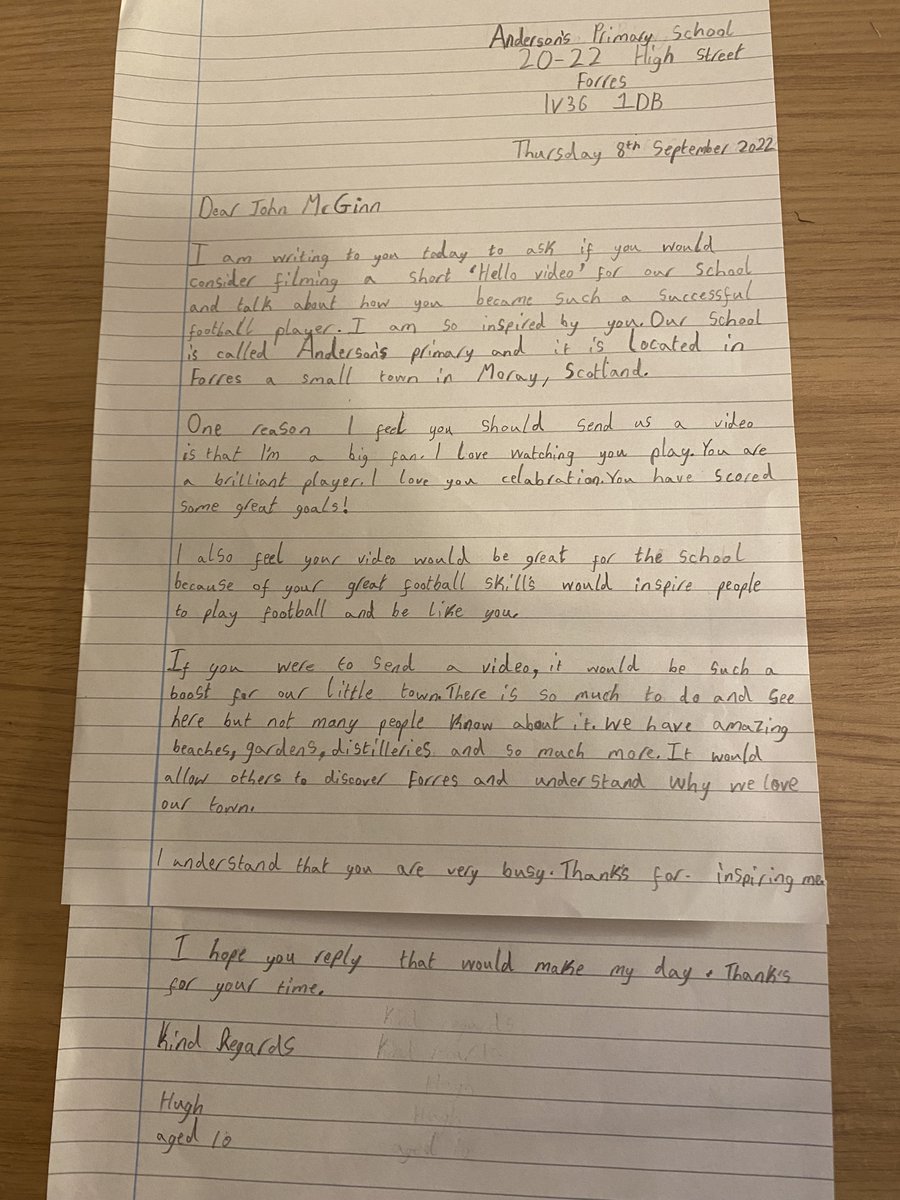 Anderson's Primary School
20-22 High Street
Forres
IV36 1DB
Thursday 8th September 2022
Dear John McGinn
I am writing to you today to ask if you would
consider filming a short 'Hello video' for our school
and talk about how you became such a successful
football player. I am so inspired by you. Our School
is called Anderson's primary and it is located in
Forres a small town in Moray, Scotland.
One reason I feel you should send us a video
is that I'm a big fan. I love watching you play. You are
a brilliant player. I love you celabration. You have scored
some great goals!
I also feel your video would be great for the school
because of your great football skills would inspire people
to play football and be like you.
If you were to send a video, it would be such a
boost for our little town. There is so much to do and see
here but not many people know about it. We have amazing
beaches, gardens, distilleries and so much more. It would
allow others to discover Forres and understand why we love
our town.
I understand that you are very busy. Thanks for inspiring me.
I hope you reply that would make my day. Thanks
for your time.
Kind Regards
Hugh
aged 10